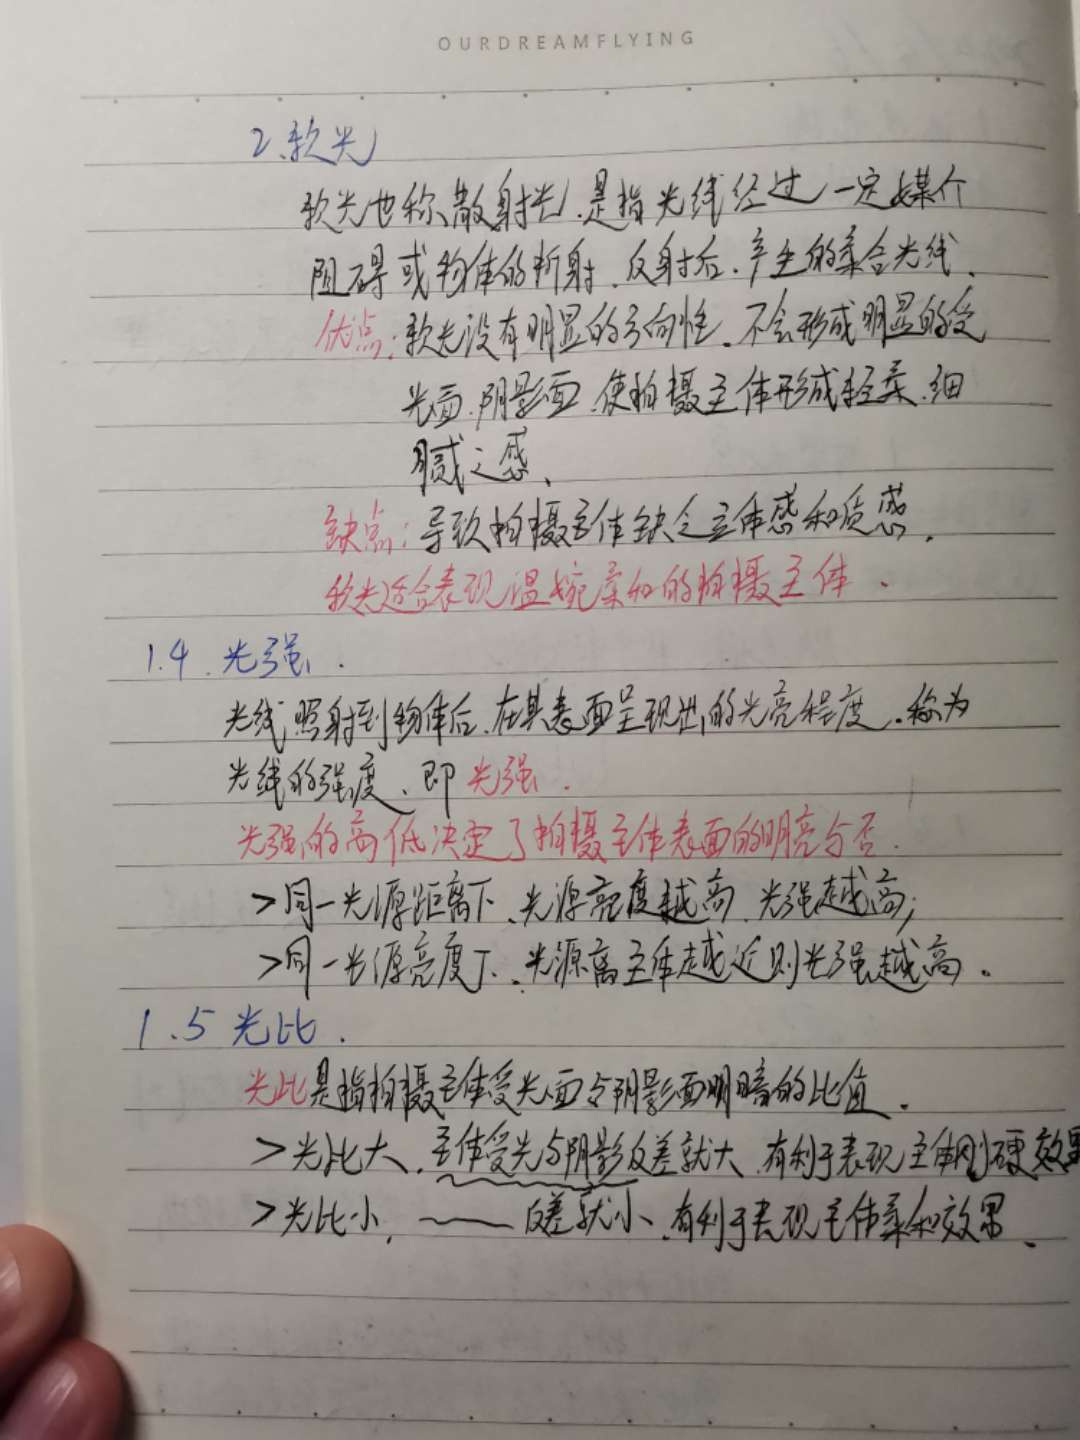 OURDREAMFLYING
2、软光
软光也称散射光,是指光线经过一定媒介
阻碍或物体的折射、反射后、产生的柔合光线、
优点:软光没有明显的方向性、不会形成明显的受
光面、阴影面,使拍摄主体形成轻柔、细
腻之感、
缺点:导致拍摄主体缺乏立体感和质感.
软光适合表现温婉柔和的拍摄主体.
1.4.光强.
光线照射到物体后,在其表面呈现出的光亮程度,称为
光线的强度、即光强.
光强的高低决定了拍摄主体表面的明亮与否.
>同一光源距离下、光源亮度越高、光强越高;
>同一光源亮度下、光源离主体越近则光强越高.
1.5光比.
光比是指拍摄主体受光面与阴影面明暗的比值.
>光比大、主体受光与阴影反差就大、有利于表现主体刚硬效果
>光比小, —— 反差就小、有利于表现主体柔和效果、